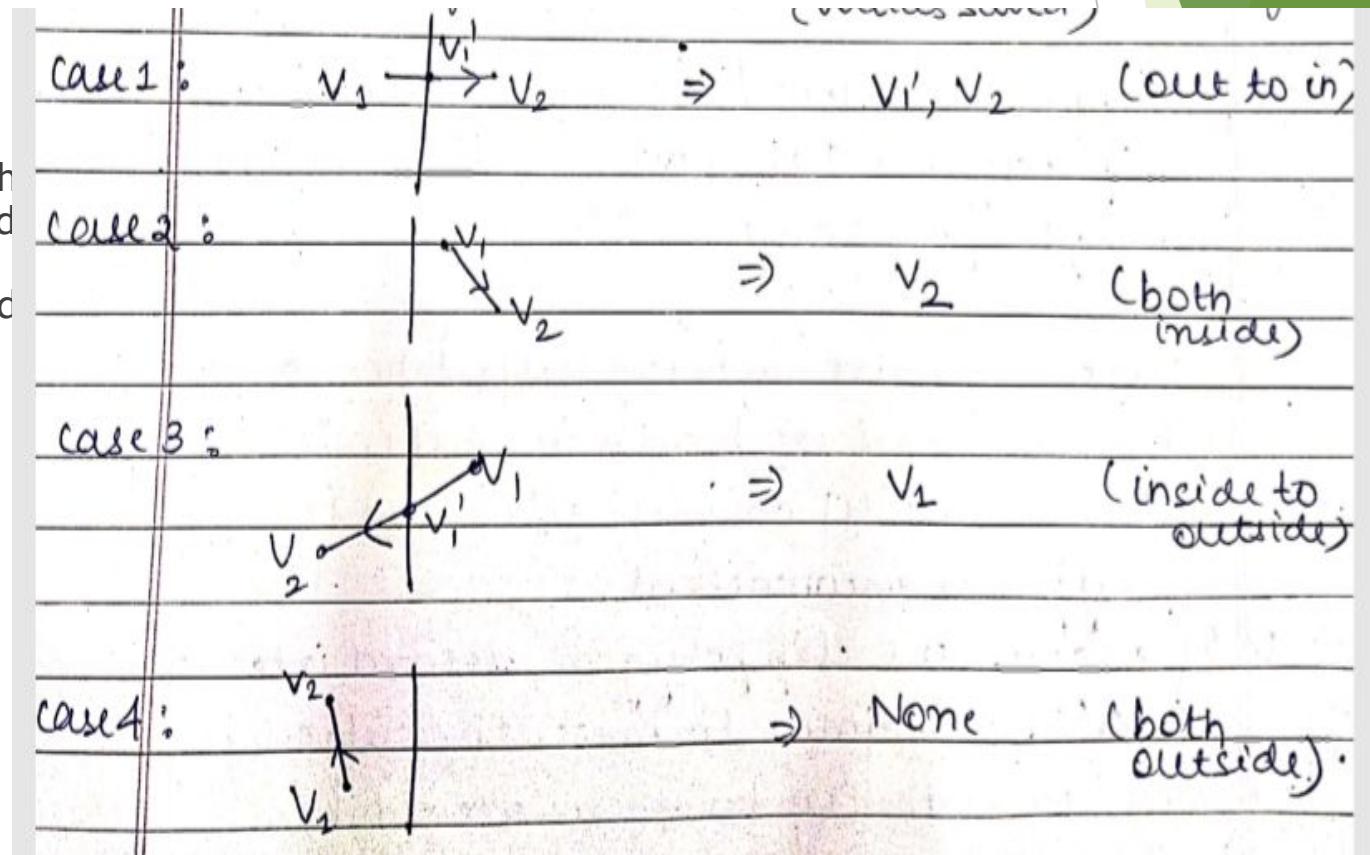 case 1 : V₁ V₁' V₂ ⇒ V₁', V₂ (out to in)
h
d
case 2 : V₁ V₂ ⇒ V₂ (both
inside)
d
case 3 : V₁ V₁' V₂ ⇒ V₁ (inside to
outside)
case 4 : V₂ V₁ ⇒ None (both
outside).